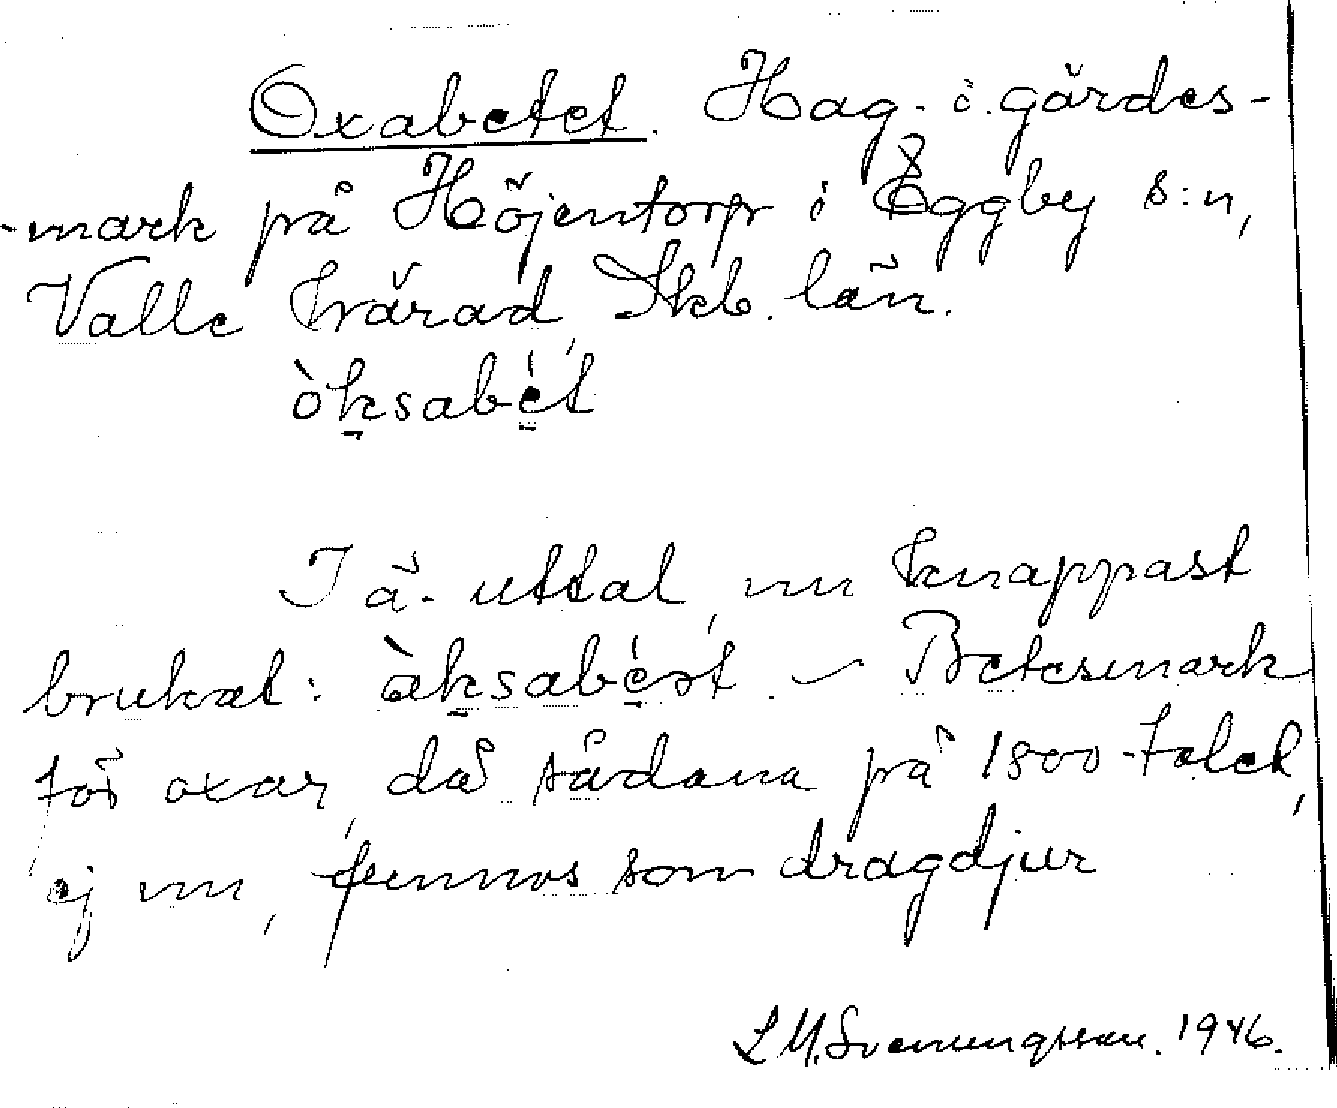 Oxabetet. Hag- i gärdes-
-mark på Höjentorp i Eggby s:n,
Valle härad, Skb. län.
òksabét
I ä. uttal, nu knappast
brukat: àksabést. – Betesmark
för oxar, då sådana på 1800-talet,
ej nu, funnos som dragdjur
L M. Svenungsson. 1946.